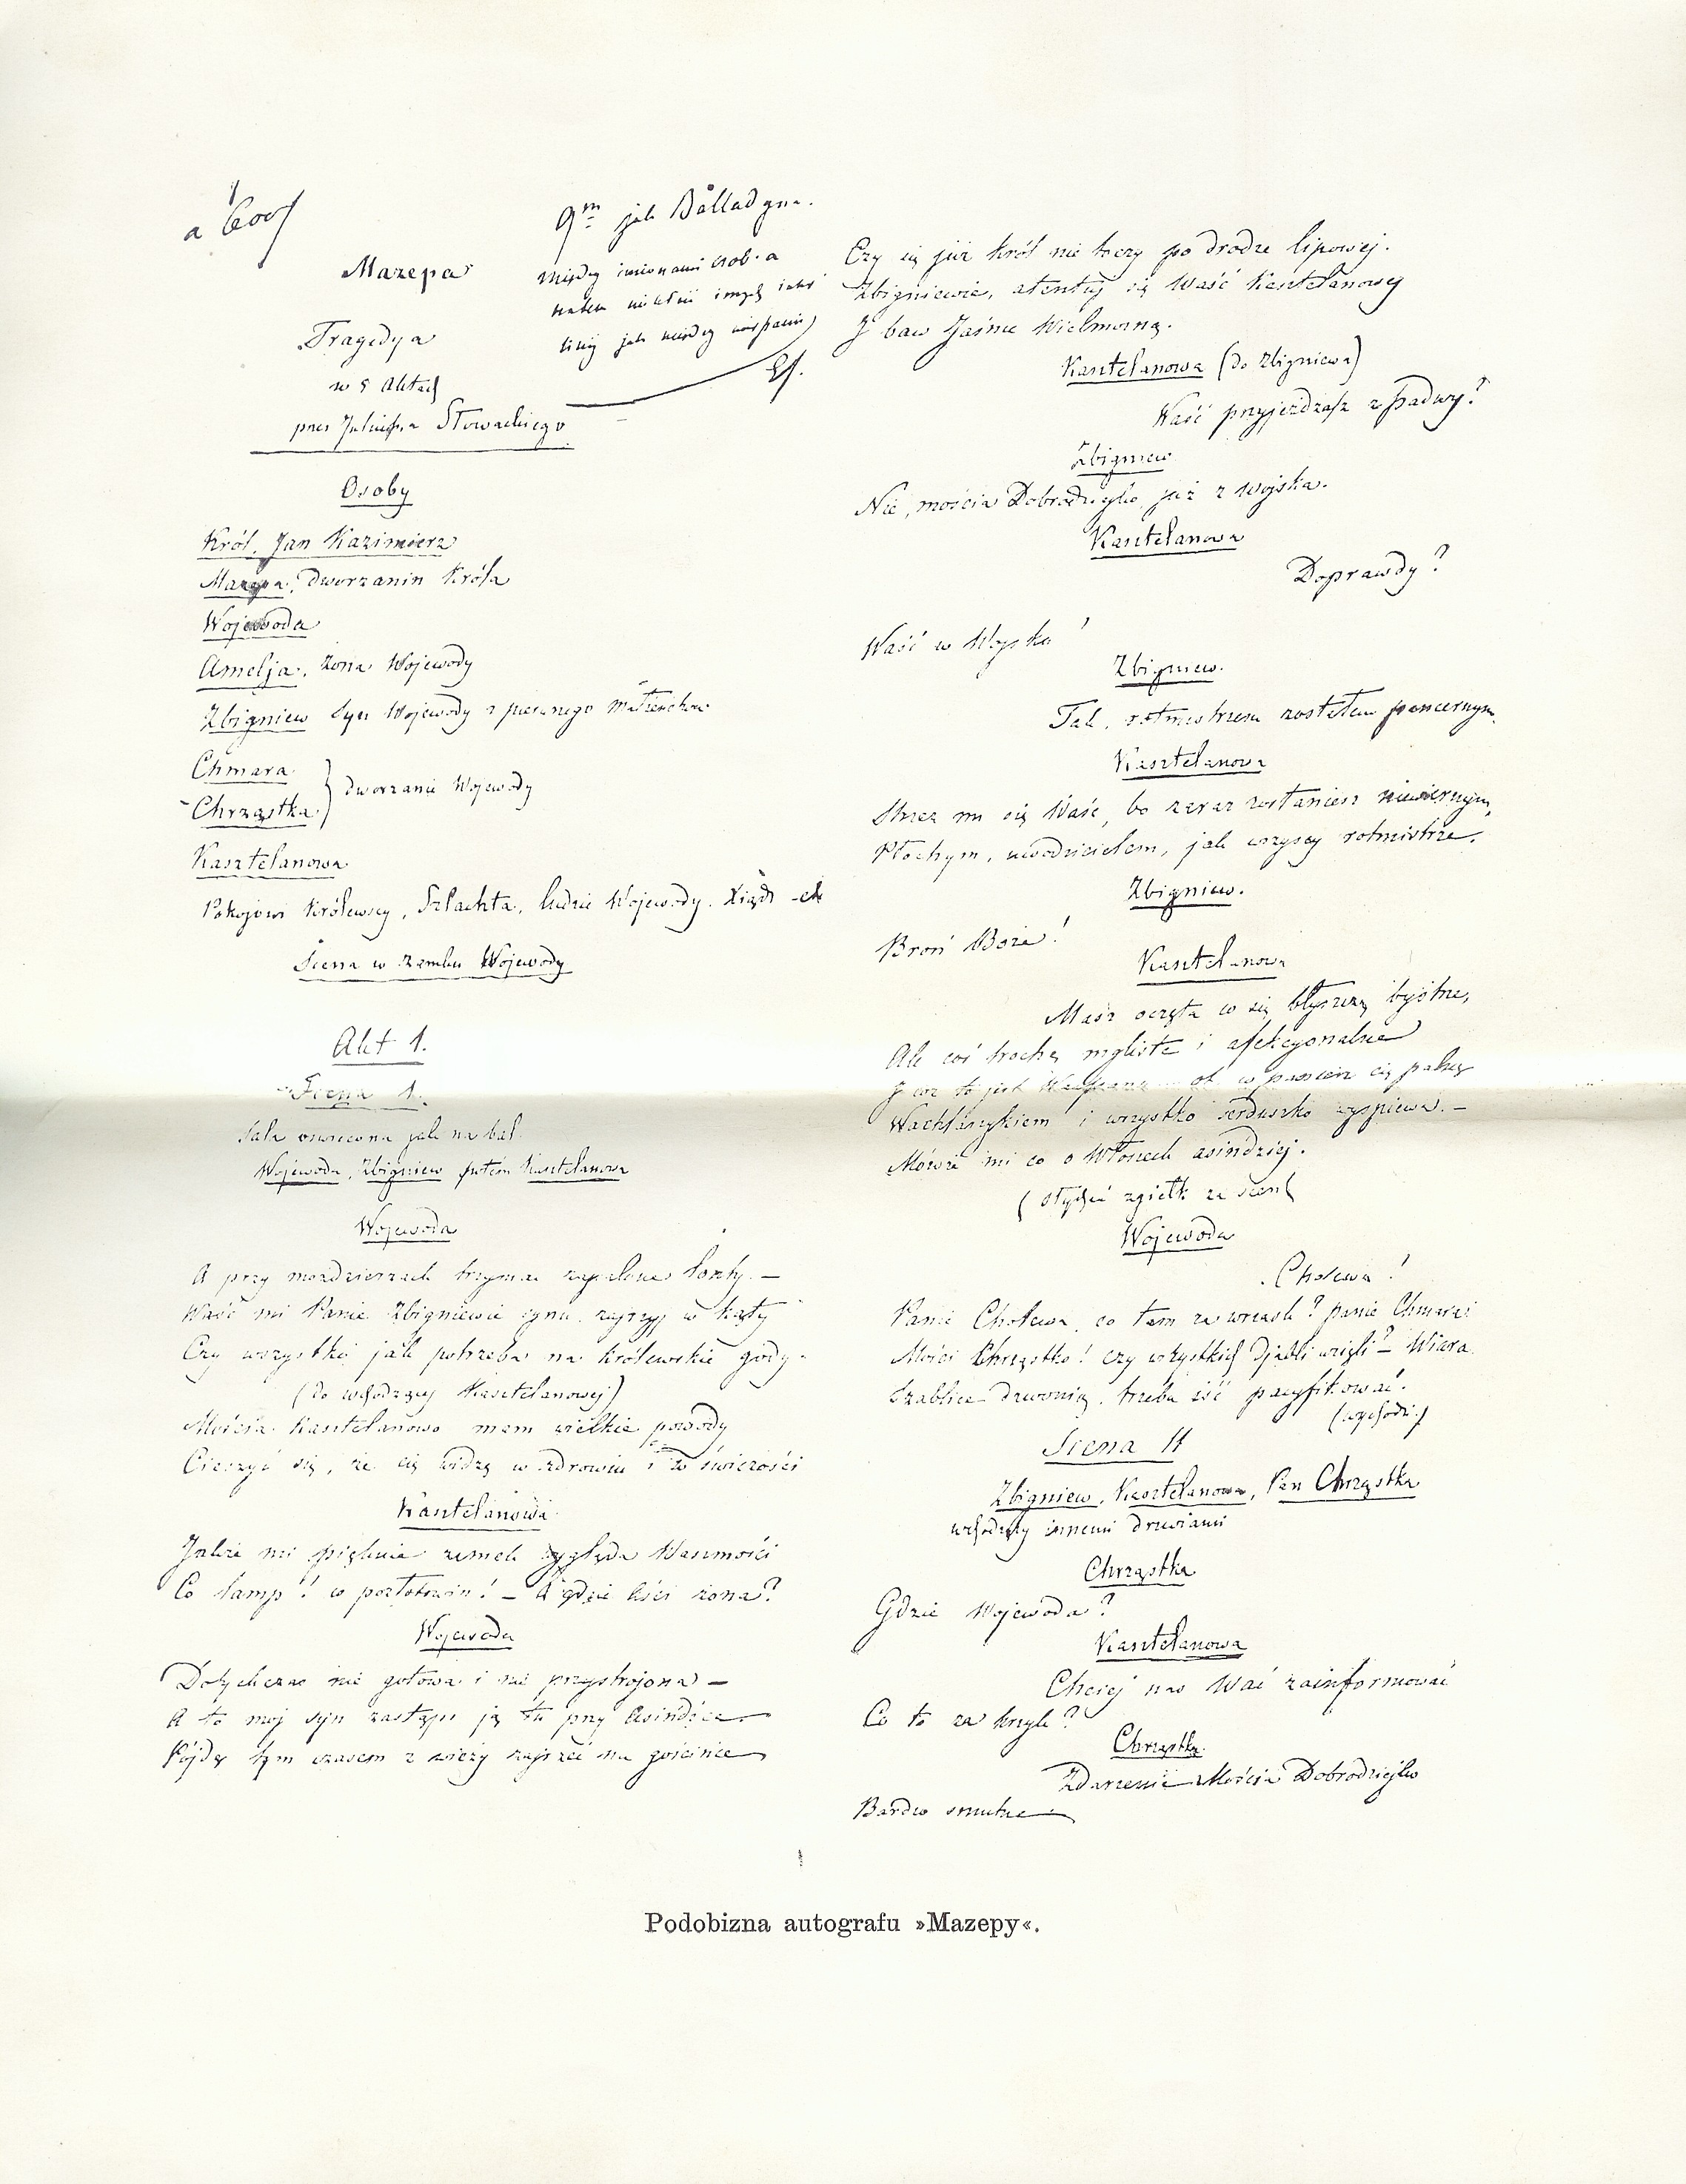 a 600
9m jak Balladyna.
Mazepa
między imionami osob a
Tragedya
w 5 Aktach
przez Juliusza Słowackiego
Osoby
Król Jan Kazimierz
Mazepa, Dworzanin Króla
Wojewoda
Amelja, żona Wojewody
Zbigniew syn Wojewody z pierwszego małżeństwa
Chmara
Chrząstka
dworzanie Wojewody
Kasztelanowa
Pokojowi Królewscy, Szlachta, ludzie Wojewody. Xiądz
Scena w zamku Wojewody
Akt 1.
Scena 1.
Sala oswiecona jak na bal.
Wojewoda, Zbigniew potém Kasztelanowa
Wojewoda
A przy mozdzierzach trzymac zapalone lonty. —
Waść mi Panie Zbigniewie synu zajrzyj w kąty
Czy wszystko jak potrzeba na królewskie gody.
(do wchodzącej Kasztelanowej)
Mościa Kasztelanowo mam wielkie powody
Cieszyć się, że cię widzę w zdrowiu i w świeżości
Kasztelanowa
Jakże mi pięknie zamek wygląda Waszmości
Co lamp! co pozłotzin! — A gdzie Aści żona?
Wojewoda
Dotychczas nie gotowa i nie przystrojona —
A to moj syn zastąpi ją tu przy Asindźce —
Pójdę tym czasem z wieży zajrzeć na gościńce
Czy się już król nie toczy po drodze lipowej.
Zbigniewie, atentuj się Waść Kasztelanowej
I baw Jaśnie Wielmożną.
Kasztelanowa (do Zbigniewa)
Waść przyjeżdżasz z Padwy?
Zbigniew
Nie, mościa Dobrodziejko, już z wojska.
Kasztelanowa
Doprawdy?
Waść w Wojsku!
Zbigniew.
Tak, rotmistrzem zostałem pancernym.
Kasztelanowa
Strzeż mi się Waść, bo zaraz zostaniesz niewiernym,
Płochym, uwodzicielem, jak wszyscy rotmistrze.
Zbigniew.
Broń Boże!
Kasztelanowa
Masz oczęta co się błyszczą bystrze,
Ale coś trochę mgliste i afekcyonalne
I coż to jest ot w pasiesz cię palnę
Wachlarzykiem i wszystko serduszko wyśpiewa. —
Mówże mi co o Włoszech asindziej.
(słychać zgiełk za sceną)
Wojewoda
Cholewa!
Panie Cholewa, co tam za wrzask? panie Chmara!
Mości Chrząstko! czy wszystkich Djabli wzięli? — Wiara
Szablice dzwonią, trzeba iść pacyfikować.
(wychodzi)
Scena II
Zbigniew, Kasztelanowa, Pan Chrząstka
wchodzący innemi drzwiami
Chrząstka
Gdzie Wojewoda?
Kasztelanowa
Chciej nas Wać zainformować
Co to za krzyk?
Chrząstka.
Zdarzenie Mościa Dobrodziejko
Bardzo smutne —
Podobizna autografu »Mazepy«.